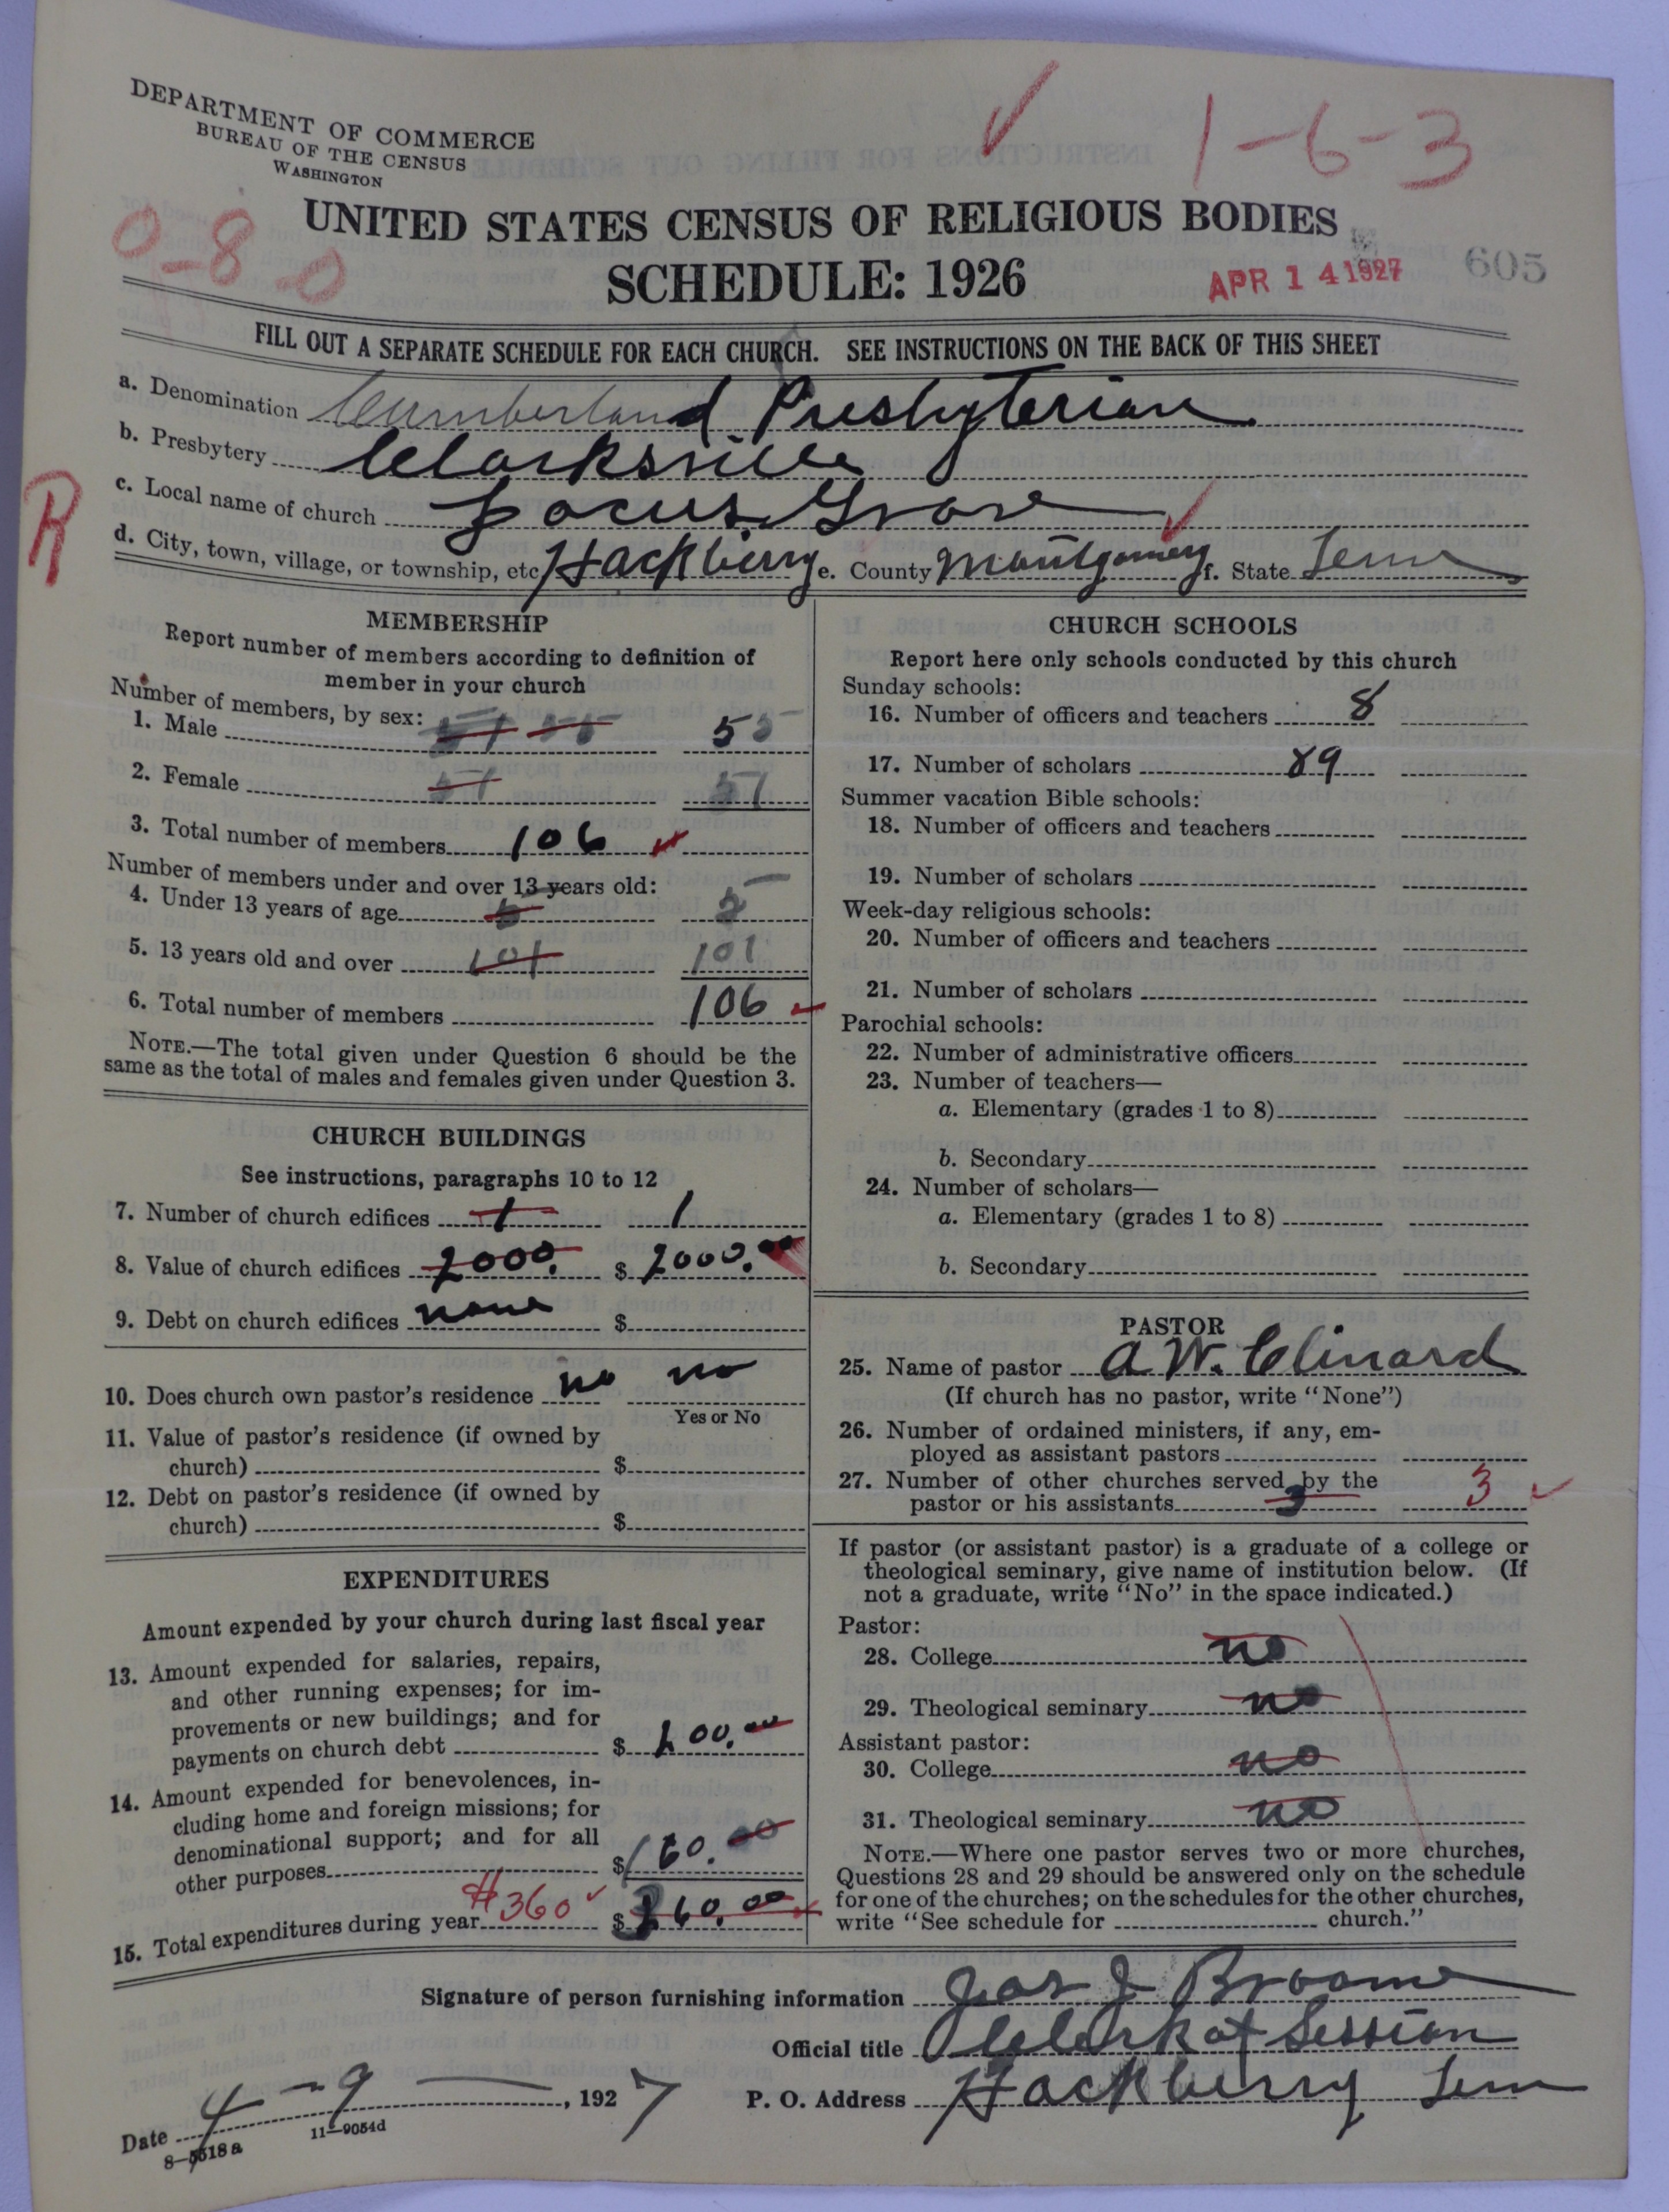 DEPARTMENT OF COMMERCE
BUREAU OF THE CENSUS
WASHINGTON
1-6-3
0-8-0
UNITED STATES CENSUS OF RELIGIOUS BODIES
SCHEDULE: 1926
APR 14 1927
605
FILL OUT A SEPARATE SCHEDULE FOR EACH CHURCH. SEE INSTRUCTIONS ON THE BACK OF THIS SHEET
a. Denomination Cumberland Presbyterian
b. Presbytery Clarksville
R
c. Local name of church Locust Grove
d. City, town, village, or township, etc Hackberry e. County Montgomery f. State Tenn
MEMBERSHIP
Report number of members according to definition of
member in your church
Number of members, by sex:
1. Male 51 55 55
2. Female 51 51
3. Total number of members 106
Number of members under and over 13 years old:
4. Under 13 years of age 5 5
5. 13 years old and over 101 101
6. Total number of members 106
NOTE.—The total given under Question 6 should be the
same as the total of males and females given under Question 3.
CHURCH BUILDINGS
See instructions, paragraphs 10 to 12
7. Number of church edifices 1 1
8. Value of church edifices 2000. $ 2000.00
9. Debt on church edifices none $
10. Does church own pastor's residence no no
Yes or No
11. Value of pastor's residence (if owned by
church) $
12. Debt on pastor's residence (if owned by
church) $
EXPENDITURES
Amount expended by your church during last fiscal year
13. Amount expended for salaries, repairs,
and other running expenses; for im-
provements or new buildings; and for
payments on church debt $ 200.00
14. Amount expended for benevolences, in-
cluding home and foreign missions; for
denominational support; and for all
other purposes $ 160.00
15. Total expenditures during year #360 $ 360.00
CHURCH SCHOOLS
Report here only schools conducted by this church
Sunday schools:
16. Number of officers and teachers 8
17. Number of scholars 89
Summer vacation Bible schools:
18. Number of officers and teachers
19. Number of scholars
Week-day religious schools:
20. Number of officers and teachers
21. Number of scholars
Parochial schools:
22. Number of administrative officers
23. Number of teachers—
a. Elementary (grades 1 to 8)
b. Secondary
24. Number of scholars—
a. Elementary (grades 1 to 8)
b. Secondary
PASTOR
25. Name of pastor A W. Clinard
(If church has no pastor, write "None")
26. Number of ordained ministers, if any, em-
ployed as assistant pastors
27. Number of other churches served by the
pastor or his assistants 3 3
If pastor (or assistant pastor) is a graduate of a college or
theological seminary, give name of institution below. (If
not a graduate, write "No" in the space indicated.)
Pastor:
28. College no
29. Theological seminary no
Assistant pastor:
30. College no
31. Theological seminary no
NOTE.—Where one pastor serves two or more churches,
Questions 28 and 29 should be answered only on the schedule
for one of the churches; on the schedules for the other churches,
write "See schedule for church."
Signature of person furnishing information Jas J Broome
Official title Clerk of Session
P. O. Address Hackberry Tenn
Date 4-9, 1927
11—9054d
8—5518a